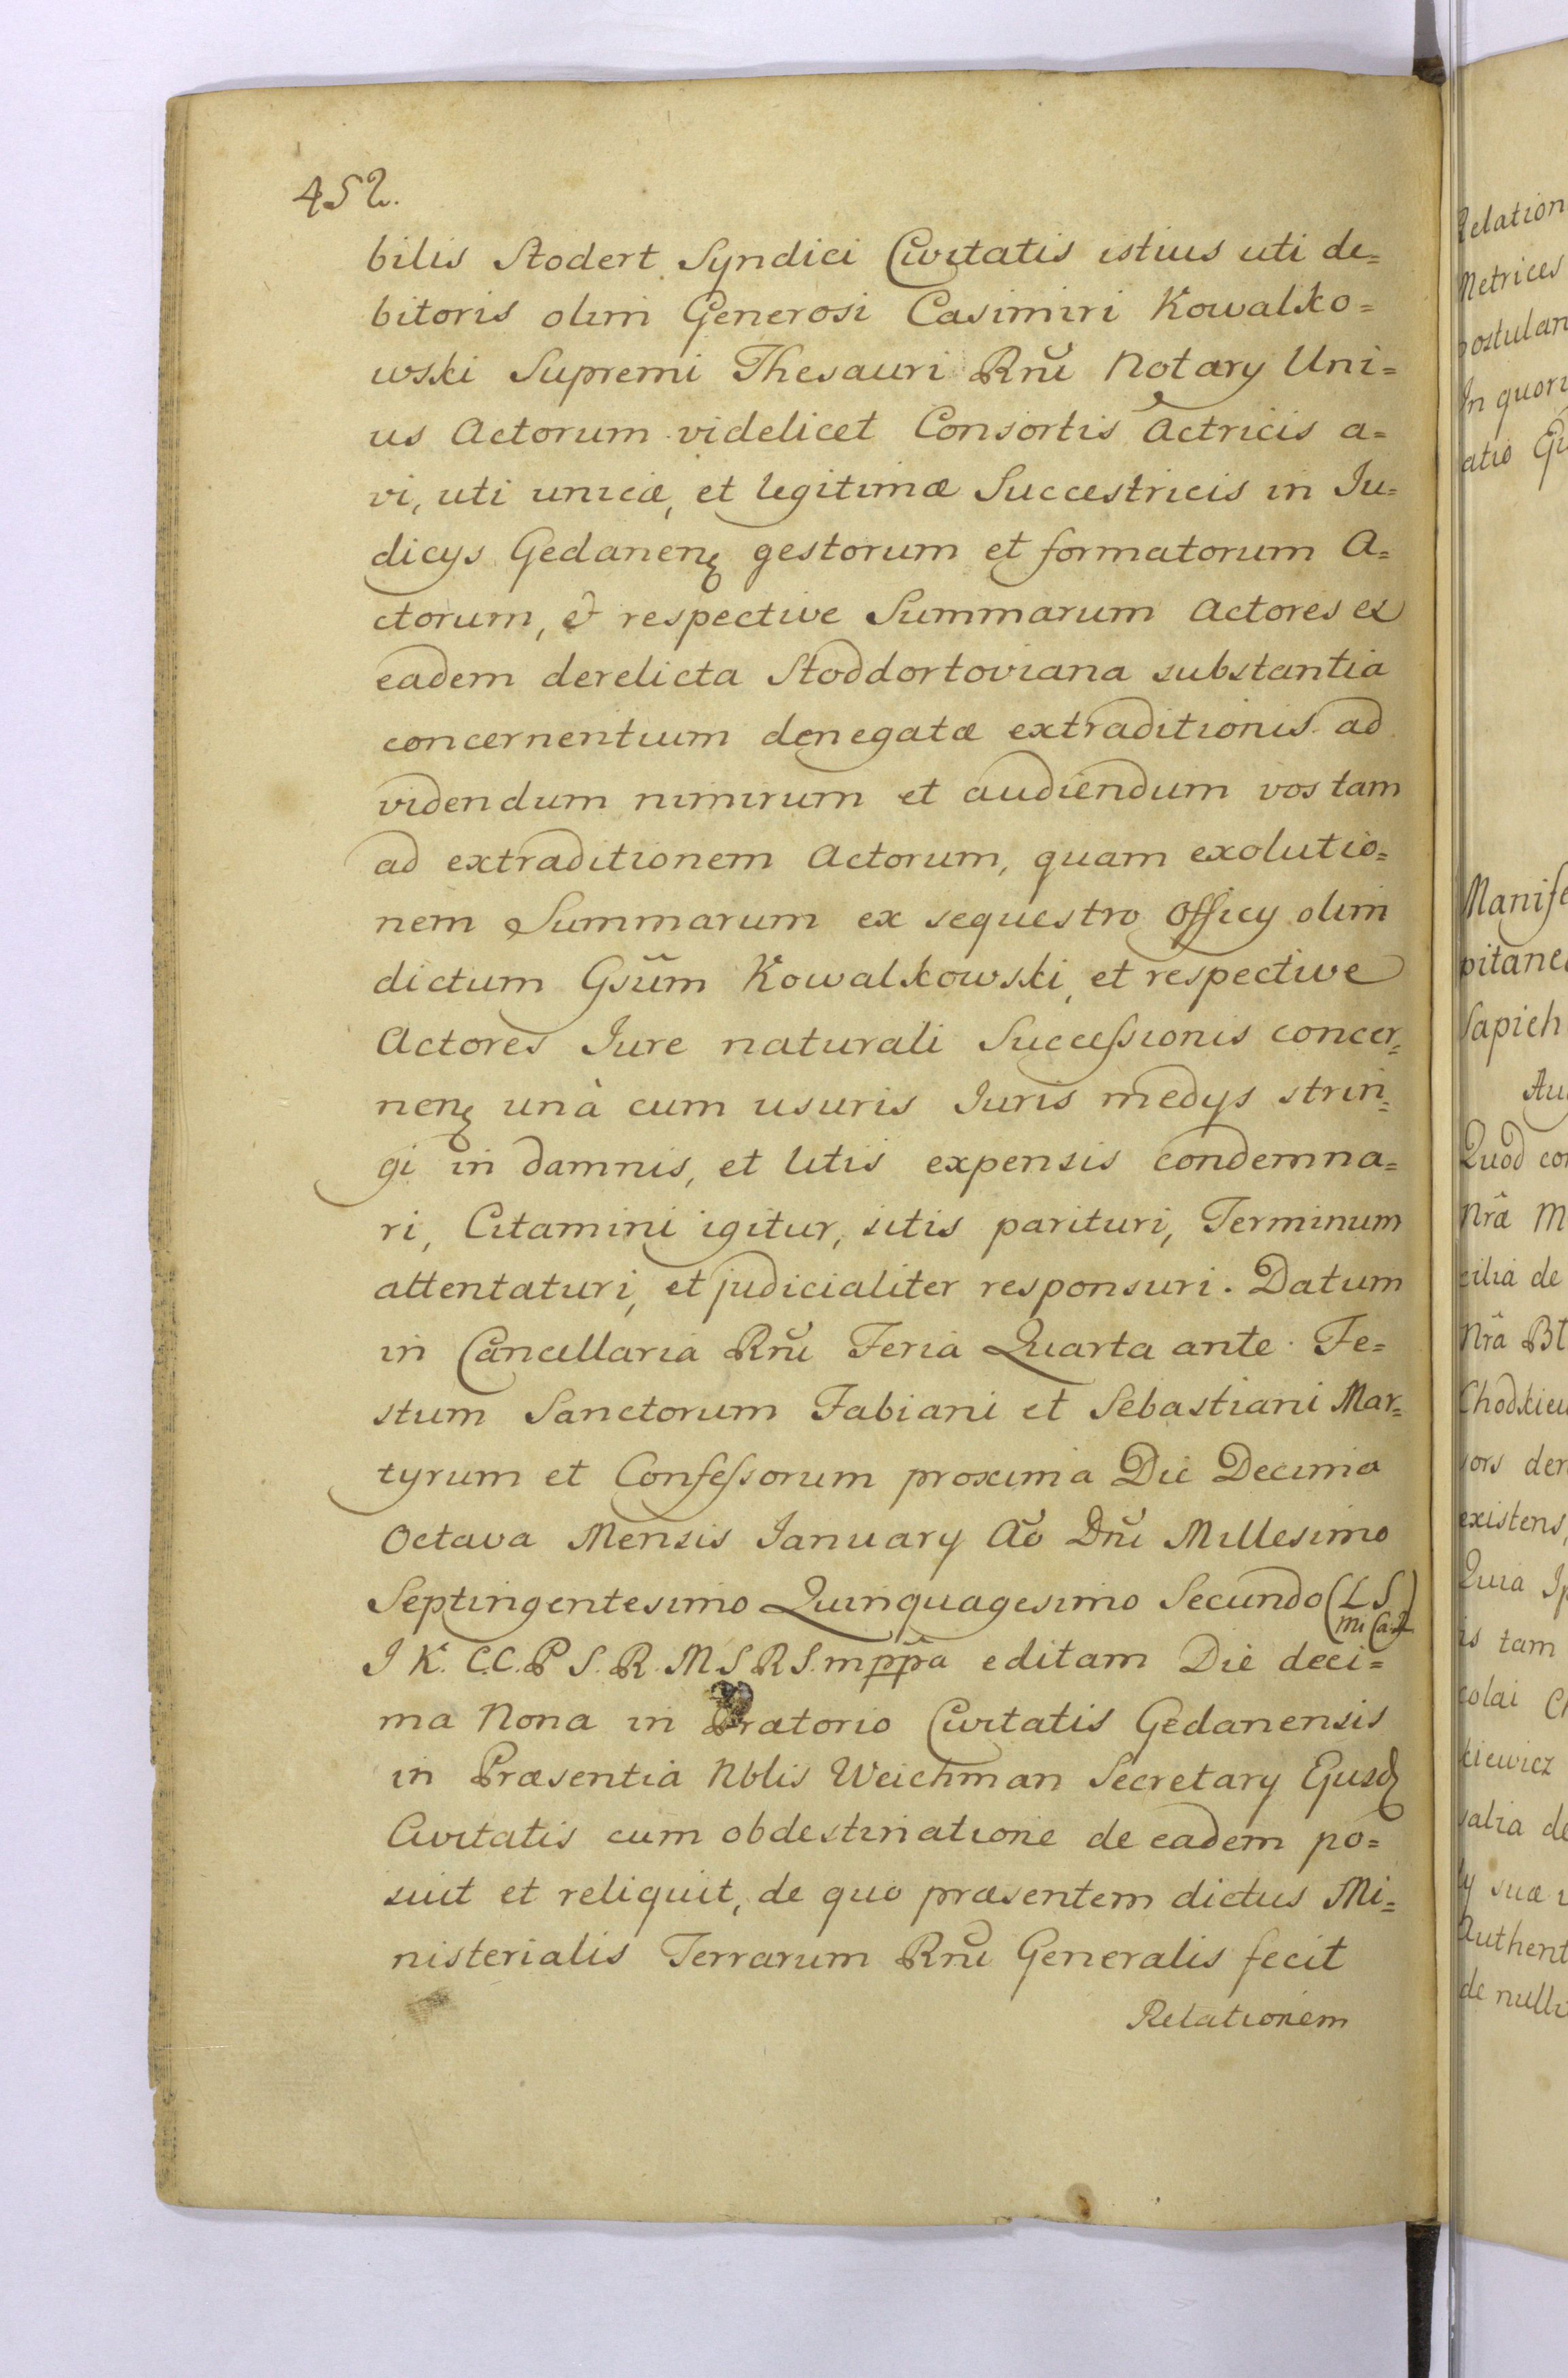 452.
bilis Stodert Syndici Civitatis istius uti de=
bitoris olim Generosi Casimiri Kowalko=
wski Supremi Thesauri Rnũ Notary Uni=
us Actorum videlicet Consortis Actricis a=
vi, uti unicæ, et legitimæ Succestricis in Iu=
dicys Gedanenς gestorum et formatorum A=
ctorum, & respective Summarum Actores ex
eadem derelicta Stoddortoviana substantia
concernentium denegatæ extraditionis ad
videndum nimirum et audiendum vos tam
ad extraditionem Actorum, quam exolutio=
nem Summarum ex sequestro Officy olim
dictum Gsũm Kowalkowski, et respective
Actores Iure naturali Successionis concer=
nenς unà cum usuris Iuris medys strin=
gi in damnis, et litis expensis condemna=
ri, Citamini igitur, sitis parituri, Terminum
attentaturi, et judicialiter responsuri. Datum
in Cancellaria Rnũ Feria Quarta ante Fe=
stum Sanctorum Fabiani et Sebastiani Mar=
tyrum et Confessorum proxima Die Decima
Octava Mensis Ianuary Aõ Dnĩ Millesimo
Septingentesimo Quinquagesimo Secundo (LS)
I K. C.C. P S. R. M S R S. mpp̃a editam Die deci=
ma Nona in Prætorio Civitatis Gedanensis
in Præsentia Nblis Weichman Secretary Ejusd
Civitatis cum obdestinatione de eadem po=
suit et reliquit, de quo præsentem dictus Mi=
nisterialis Terrarum Rnũ Generalis fecit
Relationem
Relation
Metrices
postulan
In quoru
atio
Manife
pitane
Sapieh
Quod con
Nrã M
cilia de
Nrã
Chodkiew
existens,
Quia Ip
is tam
colai Ch
kiewicz
salia de
suæ
Authent
de nulli